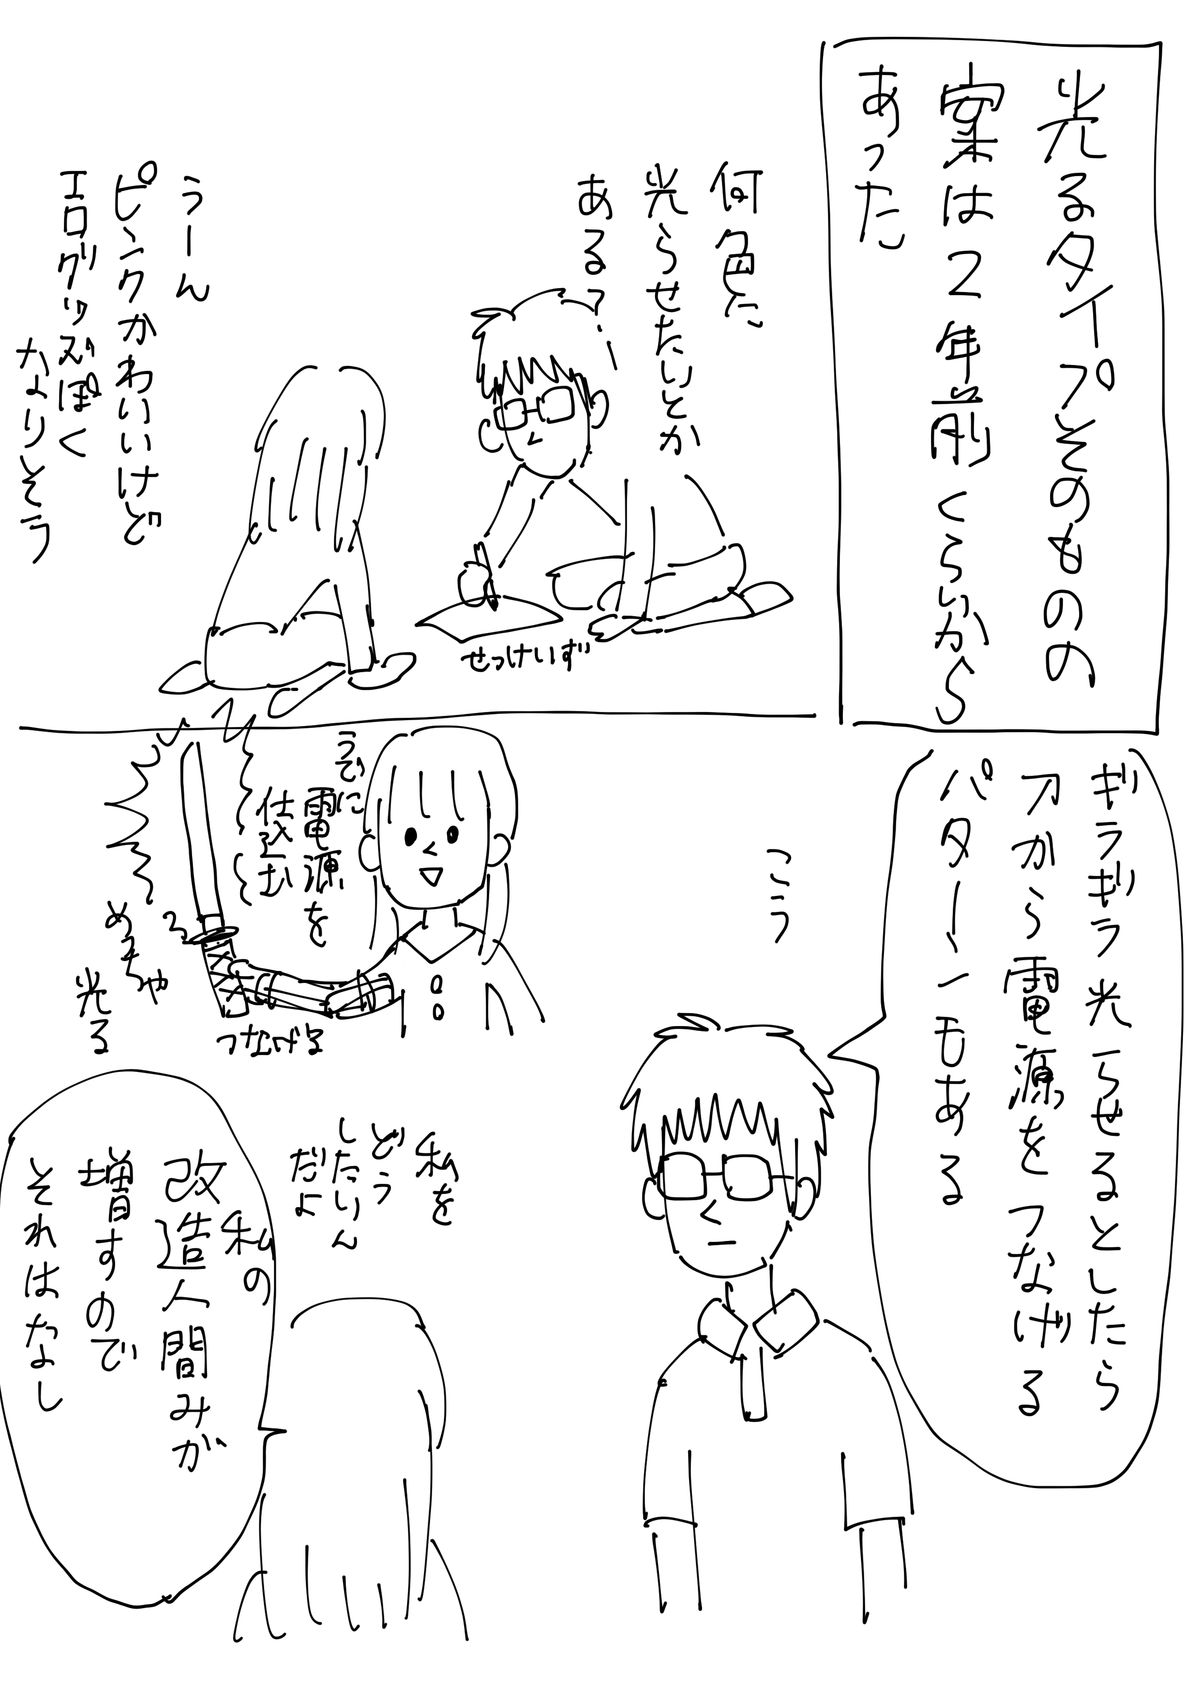 光るタイプそのものの
案は2年前くらいから
あった
何色に
光らせたいとか
ある?
うーん
ピンクかわいいけど
エログッズぽく
なりそう
せっけいず
ギラギラ光らせるとしたら
刀から電源をつなげる
パターンもある
こう
うでに
電源を
仕込む
めちゃ
光る
つなげる
私を
どう
したいん
だよ
私の
改造人間みが
増すので
それはなし